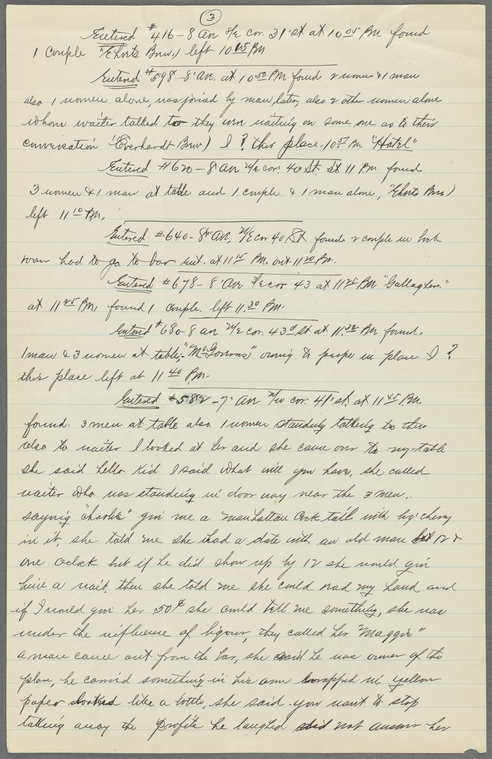 3
Entered #416-8 Ave S/E cor. 31st st at 10 05 Pm found
1 couple "Ehrets Brw.) left 10 15 Pm
Entered #598-8" Ave. at 10 50 Pm found 2 women & 1 man
also 1 women alone, was joined by man later, also 2 other women alone
whom waiter talked to they were waiting on some one as to their
conversation "Everhardt Brw) I ? this place. 10 57 Pm "Hotel"
Entered #620-8 Ave cor. 40 St. at 11 Pm found
3 women & 1 man at table and 1 couple & 1 man alone, "Ehrets Brw)
left 11 10 Pm.
Entered #640-8" Ave, N/E cor 40 St found 2 couple in back
room had to go to bar ent. at 11 15 Pm. out 11 20 Pm.
Entered #678-8" Ave cor 43 at 11 25 Pm "Gallaghers"
at 11 25 Pm found 1 couple. left 11 30 Pm.
Entered #680-8 Ave N/E cor. 43d st at 11 Pm found.
1 man & 3 women at table, owing to people in place I ?
this place left at 11 40 Pm.
Entered #582-7" Ave N/W cor. 41st st at 11 45 Pm
found. 3 men at table also 1 women standing talking to them
also to waiter I looked at her and she came over to my table
she said hello kid I said what will you have, she called
waiter who was standing in door way near the 3 men.
saying "charlie" give me a manhattan cock tail with big cherry
in it, she told me she had a date with an old man bet 12 &
one oclock but if he did show up by 12 she would give
him a wait, then she told me she could read my hand and
if I would give her 50¢ she could tell me something, she was
under the influence of liquor, they called her "Maggie"
a man came out from the bar, she said he was owner of the
place, he carried something in his arm wrapped in yellow
paper looked like a bottle, she said you want to stop
taking away the profits he laughed did not answer her